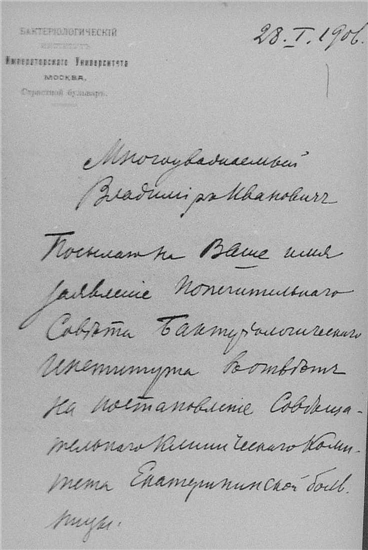 БАКТЕРІОЛОГИЧЕСКІЙ
ИНСТИТУТЪ
Императорскаго Университета
МОСКВА,
Страстной бульваръ.
28. I. 1906.
Многоуважаемый
Владиміръ Ивановичъ
Посылаю на Ваше имя
заявленіе Попечительнаго
Совѣта Бактеріологическаго
Института въ отвѣтъ
на постановленіе Совѣща-
тельнаго Клиническаго Коми-
тета Екатерининской боль-
ницы.